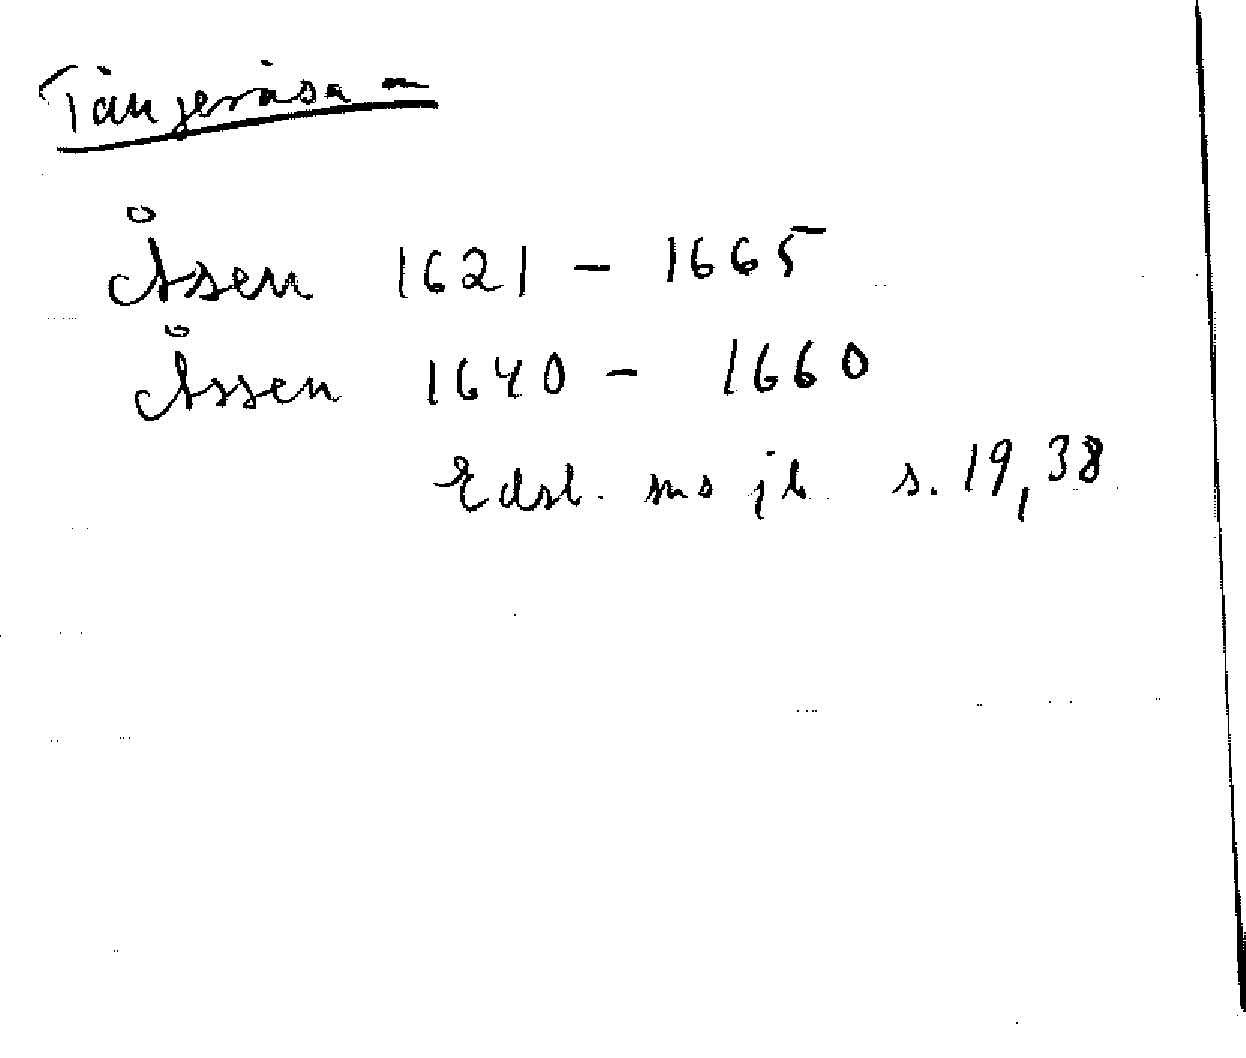 Tångeråsa –
Åsen 1621 – 1665
Åssen 1640 – 1660
Edsb. ms jb s. 19, 38